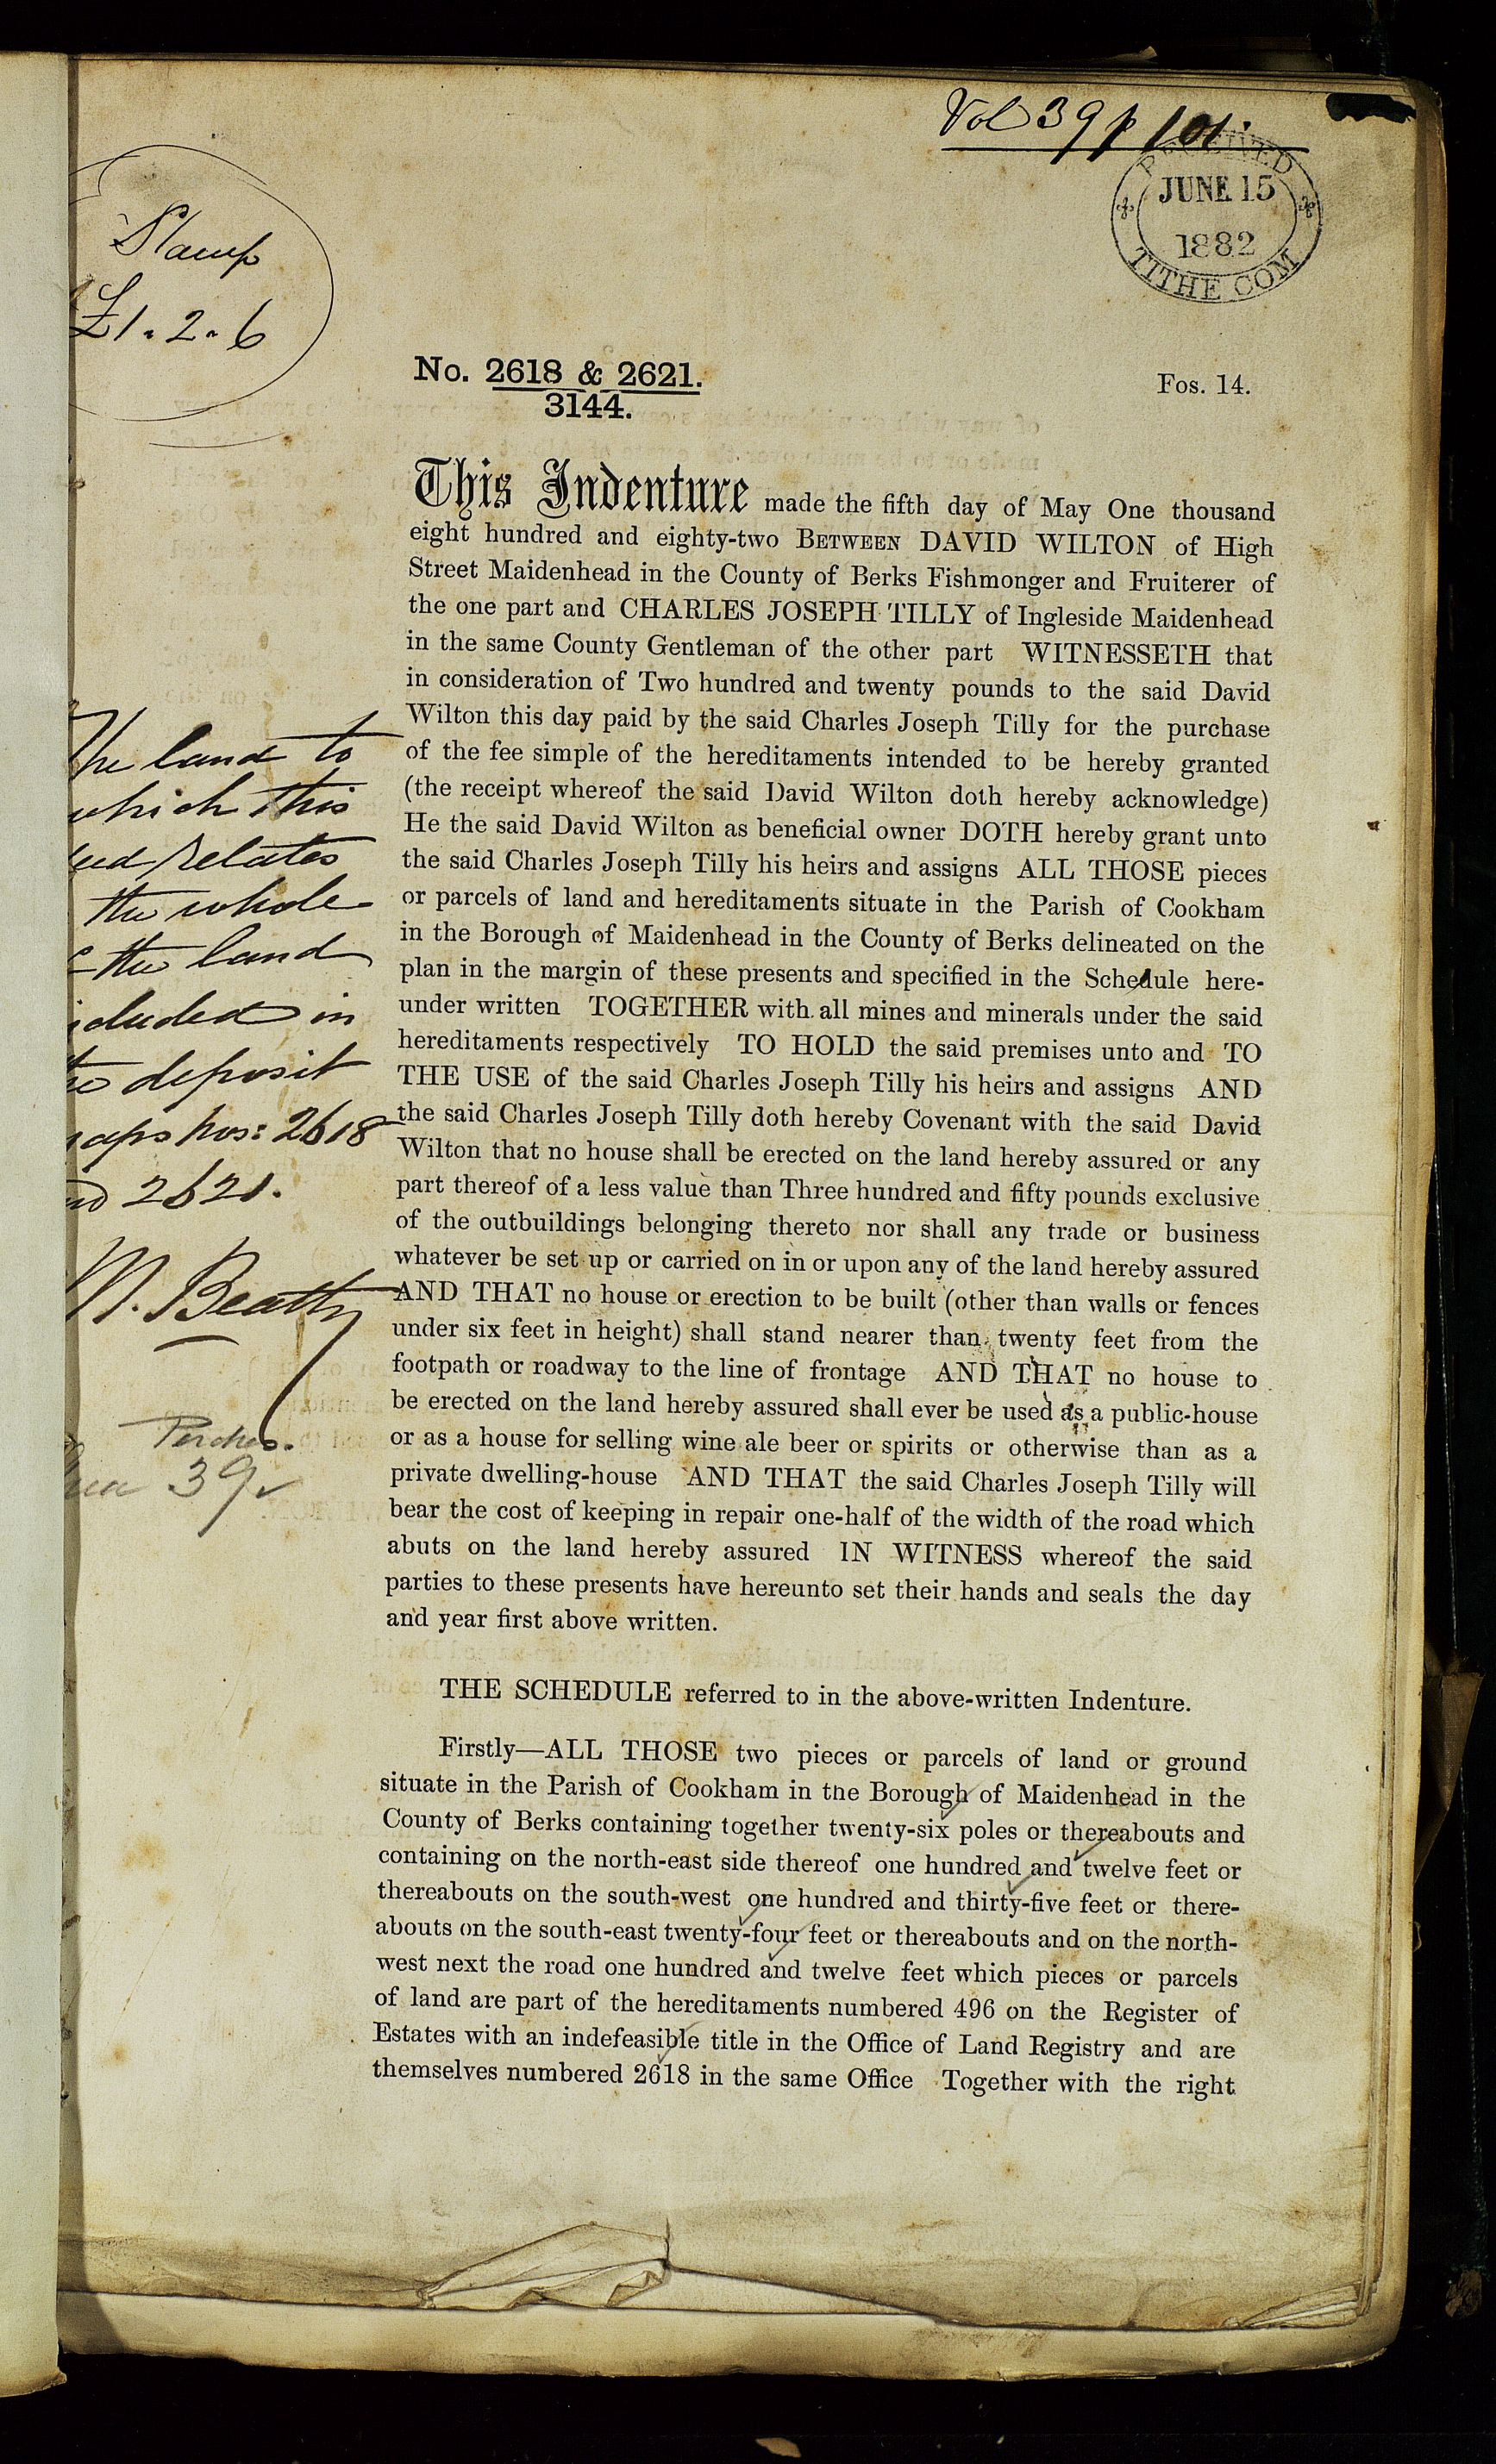 Vol 39 p 101.
RECEIVED
JUNE 15
1882
TITHE COM
Stamp
£1.2.6
No. 2618 & 2621.
3144.
Fos. 14.
This Indenture made the fifth day of May One thousand
eight hundred and eighty-two BETWEEN DAVID WILTON of High
Street Maidenhead in the County of Berks Fishmonger and Fruiterer of
the one part and CHARLES JOSEPH TILLY of Ingleside Maidenhead
in the same County Gentleman of the other part WITNESSETH that
in consideration of Two hundred and twenty pounds to the said David
Wilton this day paid by the said Charles Joseph Tilly for the purchase
of the fee simple of the hereditaments intended to be hereby granted
(the receipt whereof the said David Wilton doth hereby acknowledge)
He the said David Wilton as beneficial owner DOTH hereby grant unto
the said Charles Joseph Tilly his heirs and assigns ALL THOSE pieces
or parcels of land and hereditaments situate in the Parish of Cookham
in the Borough of Maidenhead in the County of Berks delineated on the
plan in the margin of these presents and specified in the Schedule here-
under written TOGETHER with all mines and minerals under the said
hereditaments respectively TO HOLD the said premises unto and TO
THE USE of the said Charles Joseph Tilly his heirs and assigns AND
the said Charles Joseph Tilly doth hereby Covenant with the said David
Wilton that no house shall be erected on the land hereby assured or any
part thereof of a less value than Three hundred and fifty pounds exclusive
of the outbuildings belonging thereto nor shall any trade or business
whatever be set up or carried on in or upon any of the land hereby assured
AND THAT no house or erection to be built (other than walls or fences
under six feet in height) shall stand nearer than twenty feet from the
footpath or roadway to the line of frontage AND THAT no house to
be erected on the land hereby assured shall ever be used as a public-house
or as a house for selling wine ale beer or spirits or otherwise than as a
private dwelling-house AND THAT the said Charles Joseph Tilly will
bear the cost of keeping in repair one-half of the width of the road which
abuts on the land hereby assured IN WITNESS whereof the said
parties to these presents have hereunto set their hands and seals the day
and year first above written.
The land to
which this
relates
the whole
the land
in
deposit
nos: 2618
2621.
M. Beatty
Perches.
39
THE SCHEDULE referred to in the above-written Indenture.
Firstly—ALL THOSE two pieces or parcels of land or ground
situate in the Parish of Cookham in the Borough of Maidenhead in the
County of Berks containing together twenty-six poles or thereabouts and
containing on the north-east side thereof one hundred and twelve feet or
thereabouts on the south-west one hundred and thirty-five feet or there-
abouts on the south-east twenty-four feet or thereabouts and on the north-
west next the road one hundred and twelve feet which pieces or parcels
of land are part of the hereditaments numbered 496 on the Register of
Estates with an indefeasible title in the Office of Land Registry and are
themselves numbered 2618 in the same Office Together with the right